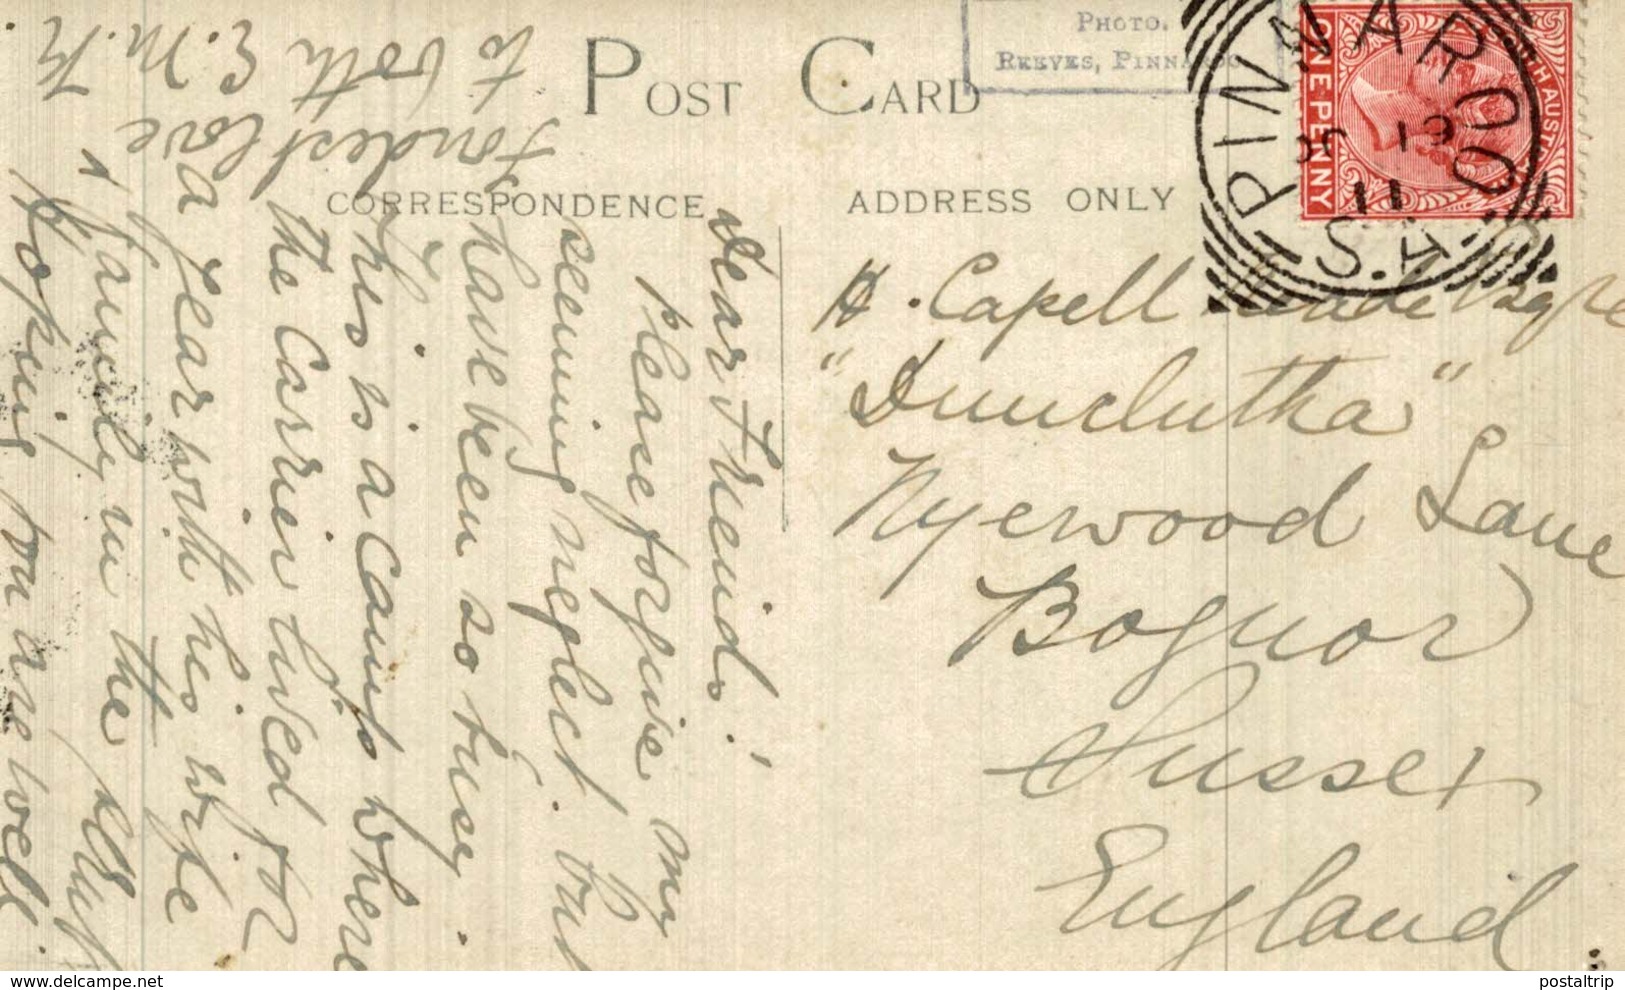 PHOTO.
REEVES, PINNAROO
POST CARD
CORRESPONDENCE
ADDRESS ONLY
PINNAROO
19
11
S.A.
ONE PENNY
H AUST
Dear Friend,
Please forgive my
seeming neglect. but
have been so busy.
This is a camp where
the Carrier lived for
a year with his wife
& family in the
Hoping you are well.
Fondest love
to both E.M.K.
H. Capell
"Dunclutha"
Nyewood Lane
Bognor
Sussex
England
postaltrip